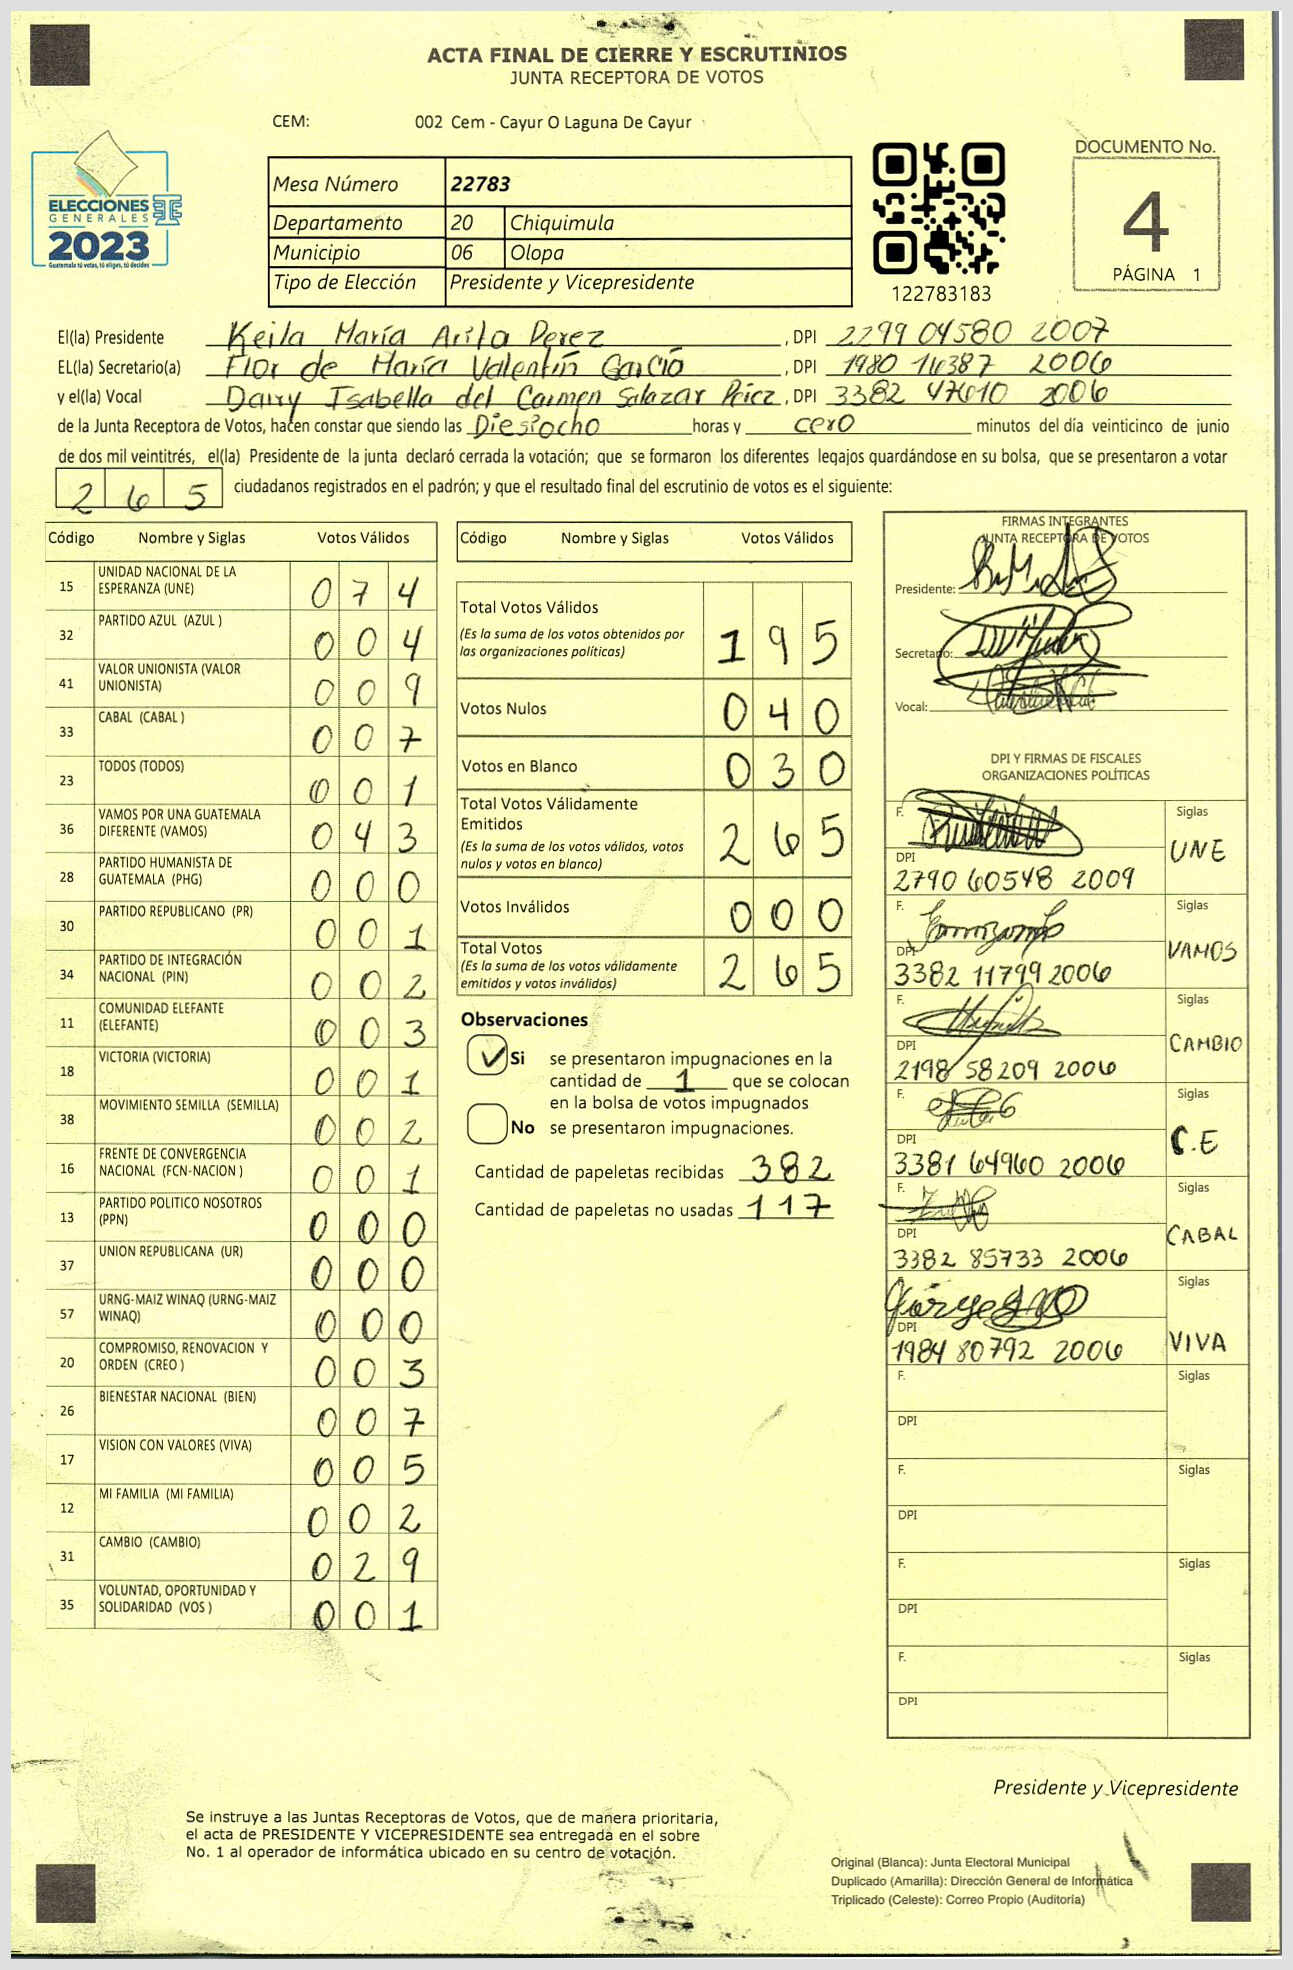 ACTA FINAL DE CIERRE Y ESCRUTINIOS
JUNTA RECEPTORA DE VOTOS
CEM: 002 Cem - Cayur O Laguna De Cayur
ELECCIONES
GENERALES
2023
Guatemala tú votas, tú eliges, tú decides
TSE
Mesa Número 22783
Departamento 20 Chiquimula
Municipio 06 Olopa
Tipo de Elección Presidente y Vicepresidente
122783183
DOCUMENTO No.
4
PÁGINA 1
El(la) Presidente Keila María Avila Perez, DPI 2299 04580 2007
EL(la) Secretario(a) Flor de María Valentín García, DPI 1980 16387 2006
y el(la) Vocal Isabella del Carmen Salazar, DPI 3382 47610 2006
de la Junta Receptora de Votos, hacen constar que siendo las Diesiocho horas y cero minutos del día veinticinco de junio
de dos mil veintitrés, el(la) Presidente de la junta declaró cerrada la votación; que se formaron los diferentes legajos guardándose en su bolsa, que se presentaron a votar
265 ciudadanos registrados en el padrón; y que el resultado final del escrutinio de votos es el siguiente:
Código Nombre y Siglas Votos Válidos
15 UNIDAD NACIONAL DE LA
ESPERANZA (UNE) 074
32 PARTIDO AZUL (AZUL ) 004
41 VALOR UNIONISTA (VALOR
UNIONISTA) 009
33 CABAL (CABAL ) 007
23 TODOS (TODOS) 001
36 VAMOS POR UNA GUATEMALA
DIFERENTE (VAMOS) 043
28 PARTIDO HUMANISTA DE
GUATEMALA (PHG) 000
30 PARTIDO REPUBLICANO (PR) 001
34 PARTIDO DE INTEGRACIÓN
NACIONAL (PIN) 002
11 COMUNIDAD ELEFANTE
(ELEFANTE) 003
18 VICTORIA (VICTORIA) 001
38 MOVIMIENTO SEMILLA (SEMILLA) 002
16 FRENTE DE CONVERGENCIA
NACIONAL (FCN-NACION ) 001
13 PARTIDO POLITICO NOSOTROS
(PPN) 000
37 UNION REPUBLICANA (UR) 000
57 URNG-MAIZ WINAQ (URNG-MAIZ
WINAQ) 000
20 COMPROMISO, RENOVACION Y
ORDEN (CREO ) 003
26 BIENESTAR NACIONAL (BIEN) 007
17 VISION CON VALORES (VIVA) 005
12 MI FAMILIA (MI FAMILIA) 002
31 CAMBIO (CAMBIO) 029
35 VOLUNTAD, OPORTUNIDAD Y
SOLIDARIDAD (VOS ) 001
Código Nombre y Siglas Votos Válidos
Total Votos Válidos
(Es la suma de los votos obtenidos por
las organizaciones políticas) 195
Votos Nulos 040
Votos en Blanco 030
Total Votos Válidamente
Emitidos
(Es la suma de los votos válidos, votos
nulos y votos en blanco) 265
Votos Inválidos 000
Total Votos
(Es la suma de los votos válidamente
emitidos y votos inválidos) 265
Observaciones
Si se presentaron impugnaciones en la
cantidad de 1 que se colocan
en la bolsa de votos impugnados
No se presentaron impugnaciones.
Cantidad de papeletas recibidas 382
Cantidad de papeletas no usadas 117
FIRMAS INTEGRANTES
JUNTA RECEPTORA DE VOTOS
Presidente:
Secretario:
Vocal:
DPI Y FIRMAS DE FISCALES
ORGANIZACIONES POLÍTICAS
F. Siglas
UNE
DPI
2790 60548 2009
F. Siglas
VAMOS
DPI
3382 11799 2006
F. Siglas
CAMBIO
DPI
2198 58209 2006
F. Siglas
C.E
DPI
3381 64960 2006
F. Siglas
CABAL
DPI
3382 85733 2006
F. Siglas
VIVA
DPI
1984 80792 2006
F. Siglas
DPI
F. Siglas
DPI
F. Siglas
DPI
F. Siglas
DPI
Presidente y Vicepresidente
Se instruye a las Juntas Receptoras de Votos, que de manera prioritaria,
el acta de PRESIDENTE Y VICEPRESIDENTE sea entregada en el sobre
No. 1 al operador de informática ubicado en su centro de votación.
Original (Blanca): Junta Electoral Municipal
Duplicado (Amarilla): Dirección General de Informática
Triplicado (Celeste): Correo Propio (Auditoría)